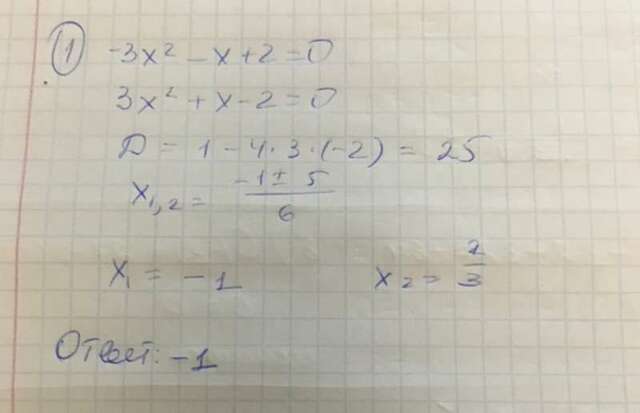 1 -3x² - x + 2 = 0
3x² + x - 2 = 0
D = 1 - 4·3·(-2) = 25
x₁,₂ = (-1 ± 5)/6
x₁ = -1 x₂ = 2/3
Ответ: -1